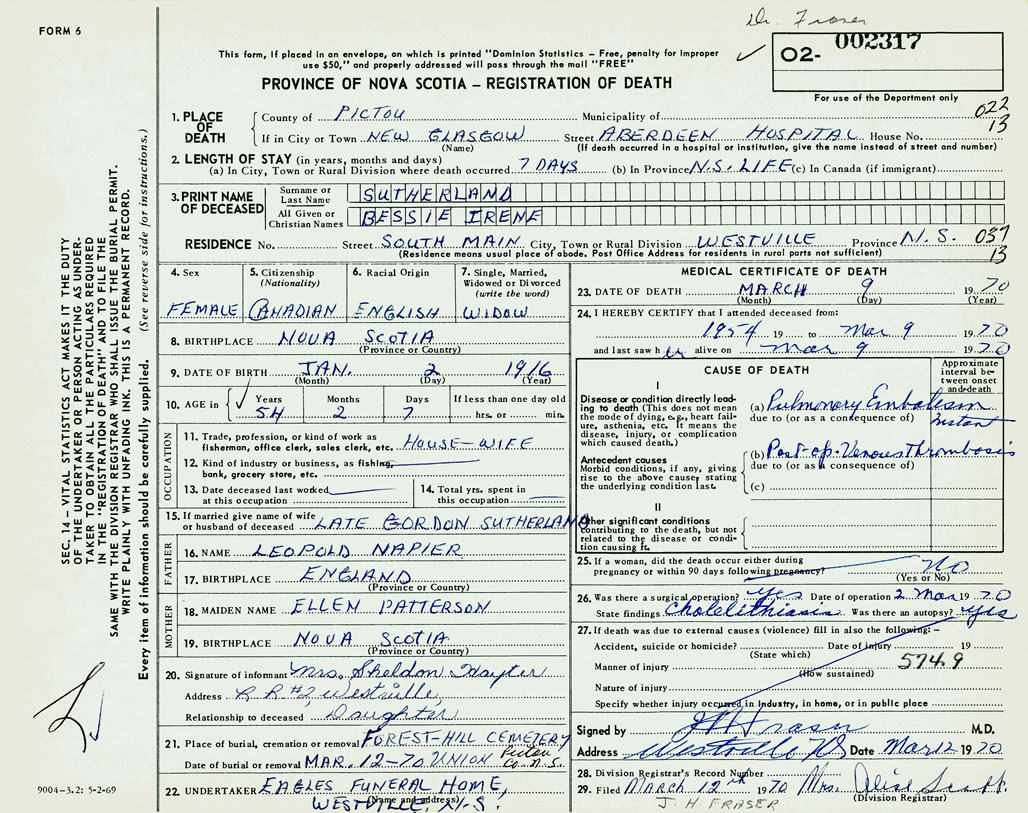 Dr. Fraser
FORM 6
This form, if placed in an envelope, on which is printed "Dominion Statistics – Free, penalty for improper
use $50," and properly addressed will pass through the mail "FREE"
PROVINCE OF NOVA SCOTIA – REGISTRATION OF DEATH
02- 002317
For use of the Department only
022
13
1. PLACE OF DEATH
County of PICTOU Municipality of
If in City or Town NEW GLASGOW Street ABERDEEN HOSPITAL House No.
(Name) (If death occurred in a hospital or institution, give the name instead of street and number)
2. LENGTH OF STAY (in years, months and days)
(a) In City, Town or Rural Division where death occurred 7 DAYS (b) In Province N.S. LIFE (c) In Canada (if immigrant)
3. PRINT NAME OF DECEASED
Surname or Last Name SUTHERLAND
All Given or Christian Names BESSIE IRENE
RESIDENCE No. Street SOUTH MAIN City, Town or Rural Division WESTVILLE Province N.S. 037
13
(Residence means usual place of abode. Post Office Address for residents in rural parts not sufficient)
4. Sex
FEMALE
5. Citizenship
(Nationality)
CANADIAN
6. Racial Origin
ENGLISH
7. Single, Married,
Widowed or Divorced
(write the word)
WIDOW
8. BIRTHPLACE NOVA SCOTIA
(Province or Country)
9. DATE OF BIRTH JAN. 2 1916
(Month) (Day) (Year)
10. AGE in
Years Months Days If less than one day old
54 2 7 hrs. or min.
OCCUPATION
11. Trade, profession, or kind of work as
fisherman, office clerk, sales clerk, etc. HOUSE-WIFE
12. Kind of industry or business, as fishing,
bank, grocery store, etc.
13. Date deceased last worked
at this occupation
14. Total yrs. spent in
this occupation
15. If married give name of wife
or husband of deceased LATE GORDON SUTHERLAND
FATHER
16. NAME LEOPOLD NAPIER
17. BIRTHPLACE ENGLAND
(Province or Country)
MOTHER
18. MAIDEN NAME ELLEN PATTERSON
19. BIRTHPLACE NOVA SCOTIA
(Province or Country)
20. Signature of informant Mrs. Sheldon Hayter
Address R R #2, Westville,
Relationship to deceased Daughter
21. Place of burial, cremation or removal FOREST-HILL CEMETERY
Date of burial or removal MAR. 12-70 UNION Pictou Co. N.S.
22. UNDERTAKER EAGLES FUNERAL HOME,
(Name and address)
WESTVILLE, N.S.
MEDICAL CERTIFICATE OF DEATH
23. DATE OF DEATH MARCH 9 1970
(Month) (Day) (Year)
24. I HEREBY CERTIFY that I attended deceased from:
1954 19 to Mar 9 1970
and last saw her alive on Mar 9 1970
CAUSE OF DEATH
Approximate
interval be-
tween onset
and death
I
Disease or condition directly lead-
ing to death (This does not mean
the mode of dying, e.g., heart fail-
ure, asthenia, etc. It means the
disease, injury, or complication
which caused death.)
(a) Pulmonary Embolism
due to (or as a consequence of)
Instant
Antecedent causes
Morbid conditions, if any, giving
rise to the above cause, stating
the underlying condition last.
(b) Post-op. Venous Thrombosis
due to (or as a consequence of)
(c)
II
Other significant conditions
contributing to the death, but not
related to the disease or condi-
tion causing it.
25. If a woman, did the death occur either during
pregnancy or within 90 days following pregnancy? No
(Yes or No)
26. Was there a surgical operation? Yes Date of operation 2 Mar 1970
State findings Cholelithiasis Was there an autopsy? Yes
27. If death was due to external causes (violence) fill in also the following: –
Accident, suicide or homicide? Date of injury 19
(State which)
Manner of injury 574.9
(How sustained)
Nature of injury
Specify whether injury occurred in industry, in home, or in public place
Signed by J H Fraser M.D.
Address Westville NS Date Mar 12 1970
28. Division Registrar's Record Number
29. Filed March 12th 1970 Mrs. Alice Scott.
(Division Registrar)
J. H FRASER
SEC. 14 – VITAL STATISTICS ACT MAKES IT THE DUTY
OF THE UNDERTAKER OR PERSON ACTING AS UNDER-
TAKER TO OBTAIN ALL THE PARTICULARS REQUIRED
IN THE "REGISTRATION OF DEATH" AND TO FILE THE
SAME WITH THE DIVISION REGISTRAR WHO SHALL ISSUE THE BURIAL PERMIT.
WRITE PLAINLY WITH UNFADING INK. THIS IS A PERMANENT RECORD.
Every item of information should be carefully supplied. (See reverse side for instructions.)
9004-3.2: 5-2-69